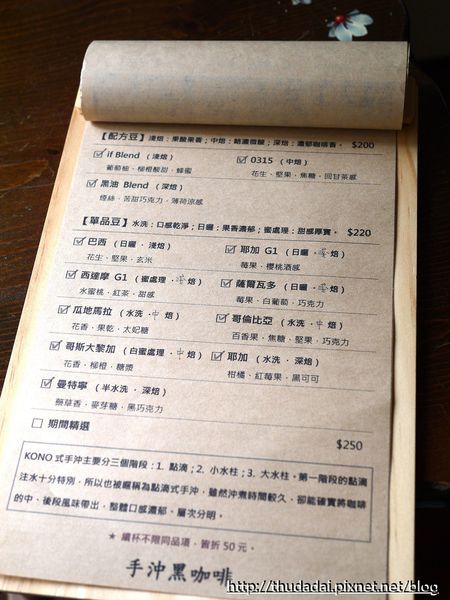 【配方豆】淺焙：果酸果香；中焙：略濃微酸；深焙：濃郁咖啡香。 $200
☑ if Blend （淺焙） ☑ 0315 （中焙）
葡萄柚、柳橙酸甜、蜂蜜 花生、堅果、焦糖、回甘茶感
☑ 黑油 Blend （深焙）
煙絲、苦甜巧克力、薄荷涼感
【單品豆】水洗：口感乾淨；日曬：果香濃郁；蜜處理：甜感厚實。 $220
☑ 巴西 （日曬．淺焙） ☑ 耶加 G1 （日曬．淺焙）
花生、堅果、玄米 莓果、櫻桃酒感
☑ 西達摩 G1 （蜜處理．淺焙） ☑ 薩爾瓦多 （日曬．淺焙）
水蜜桃、紅茶、甜感 莓果、白葡萄、巧克力
☑ 瓜地馬拉 （水洗．中焙） ☑ 哥倫比亞 （水洗．中焙）
花香、果乾、太妃糖 百香果、焦糖、堅果、巧克力
☑ 哥斯大黎加 （白蜜處理．中焙） ☑ 耶加 （水洗．深焙）
花香、柳橙、糖漿 柑橘、紅莓果、黑可可
☑ 曼特寧 （半水洗．深焙）
藥草香、麥芽糖、黑巧克力
☐ 期間精選 $250
KONO 式手沖主要分三個階段：1. 點滴；2. 小水柱；3. 大水柱。第一階段的點滴
注水十分特別，所以也被暱稱為點滴式手沖，雖然沖煮時間較久，卻能確實將咖啡
的中、後段風味帶出，整體口感濃郁、層次分明。
★ 續杯不限同品項，皆折 50 元。
手沖黑咖啡
http://thudadai.pixnet.net/blog